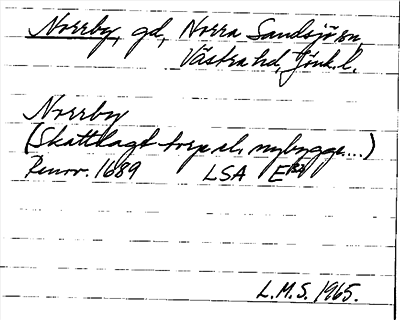 Norrby, gd, Norra Sandsjö sn,
Västra hd, Jönk. l.
Norrby
(Skattlagt torp al. nybygge...)
Renov. 1689 LSA E
L.M.S. 1965.